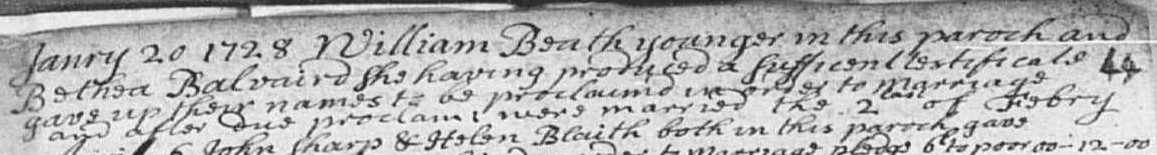 Janry 20 1728 William Beath younger in this paroch and
Bethea Balvaird she having produced a sufficent testificate 44
gave up their names to be proclaimd in order to marriage
and after due proclam: were married the 2 of Febry
6 John Sharp & Helen Blaith both in this paroch gave
to marriage pledge 6 to poor 00-12-00